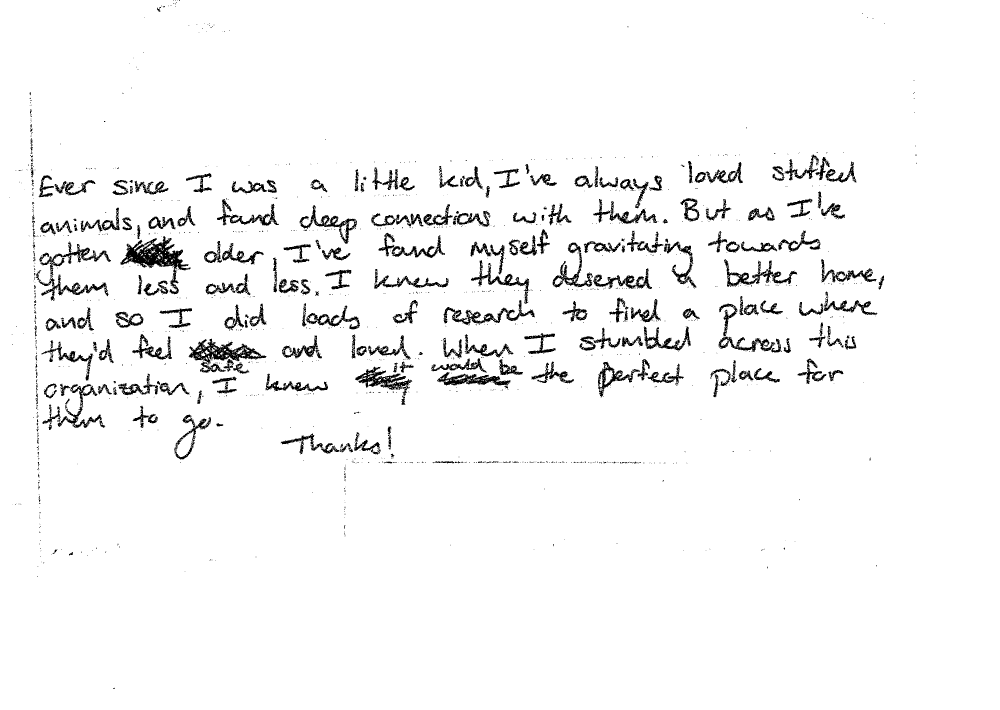 Ever since I was a little kid, I've always loved stuffed
animals, and found deep connections with them. But as I've
gotten older, I've found myself gravitating towards
them less and less. I knew they deserved a better home,
and so I did loads of research to find a place where
they'd feel safe and loved. When I stumbled across this
organization, I knew it would be the perfect place for
them to go.
Thanks!